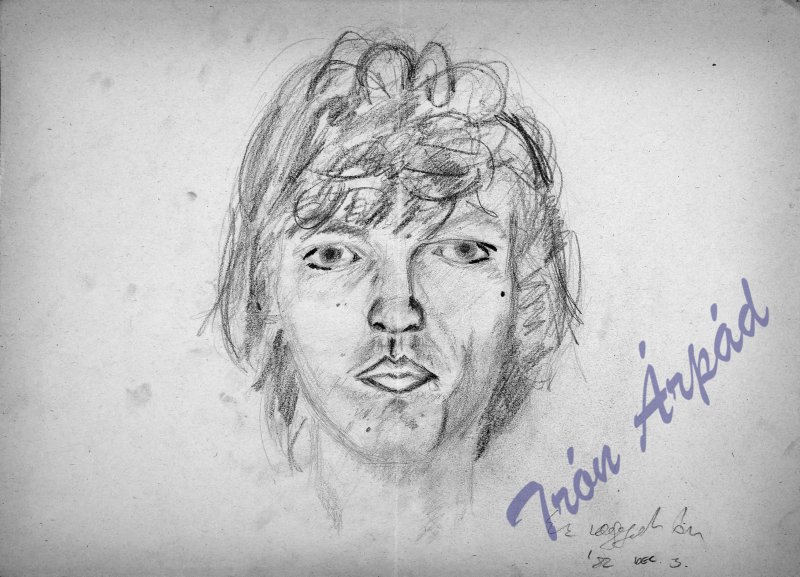 Trón Árpád
Ez vagyok én
'82 DEC. 3.